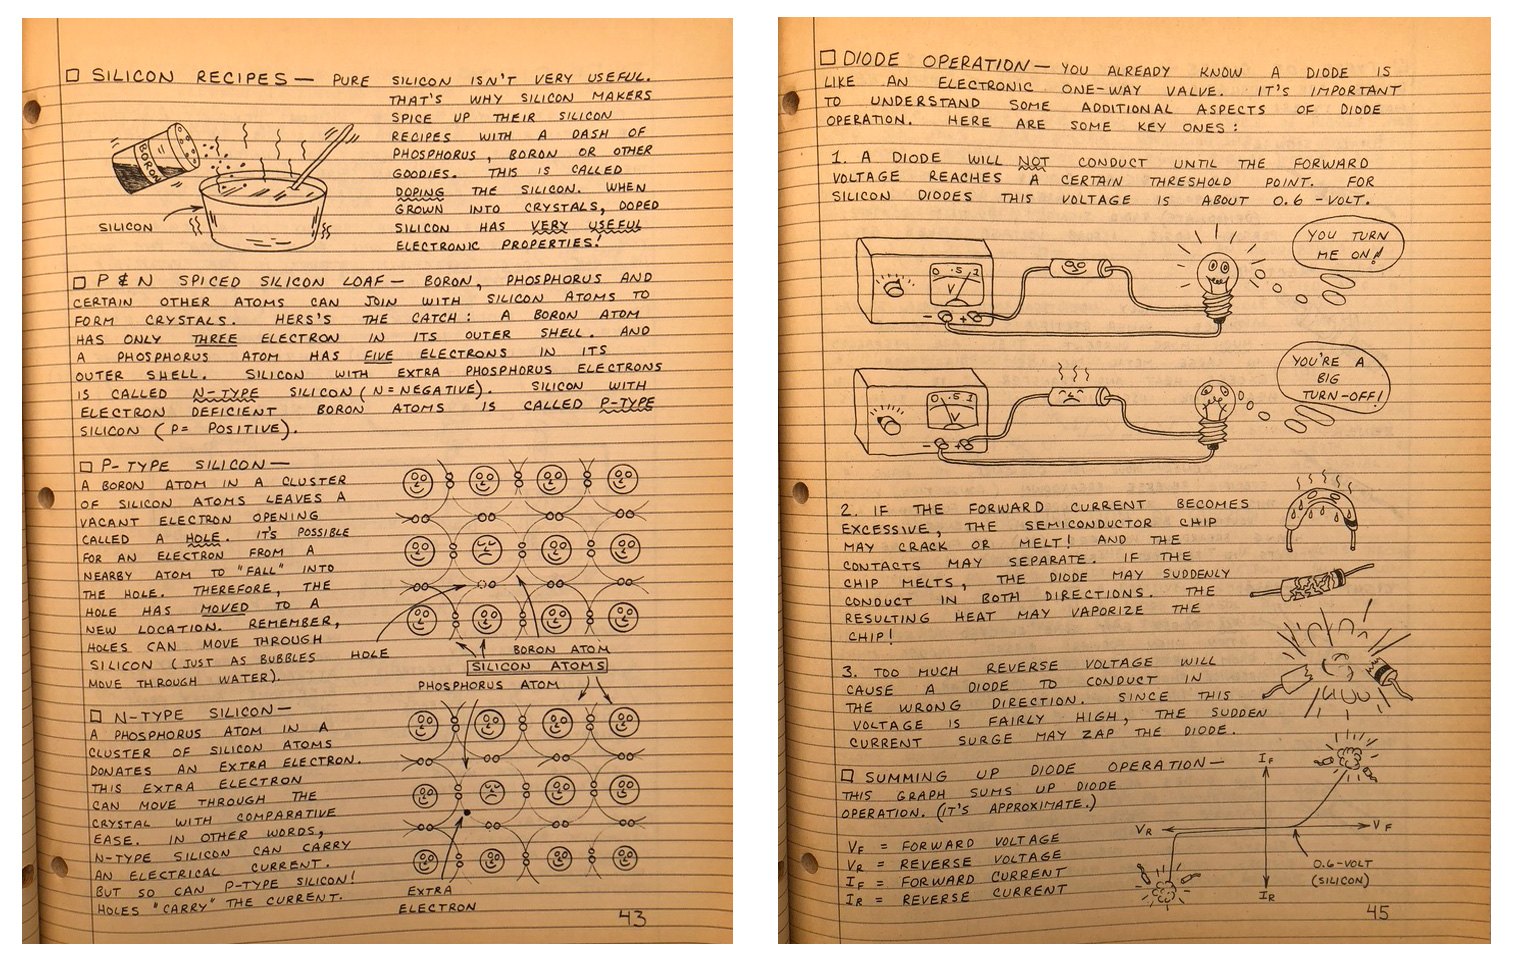 □ SILICON RECIPES — PURE SILICON ISN'T VERY USEFUL.
THAT'S WHY SILICON MAKERS
SPICE UP THEIR SILICON
RECIPES WITH A DASH OF
PHOSPHORUS, BORON OR OTHER
GOODIES. THIS IS CALLED
DOPING THE SILICON. WHEN
GROWN INTO CRYSTALS, DOPED
SILICON HAS VERY USEFUL
ELECTRONIC PROPERTIES!
BORON
SILICON
□ P & N SPICED SILICON LOAF — BORON, PHOSPHORUS AND
CERTAIN OTHER ATOMS CAN JOIN WITH SILICON ATOMS TO
FORM CRYSTALS. HERS'S THE CATCH: A BORON ATOM
HAS ONLY THREE ELECTRON IN ITS OUTER SHELL. AND
A PHOSPHORUS ATOM HAS FIVE ELECTRONS IN ITS
OUTER SHELL. SILICON WITH EXTRA PHOSPHORUS ELECTRONS
IS CALLED N-TYPE SILICON (N=NEGATIVE). SILICON WITH
ELECTRON DEFICIENT BORON ATOMS IS CALLED P-TYPE
SILICON (P= POSITIVE).
□ P-TYPE SILICON —
A BORON ATOM IN A CLUSTER
OF SILICON ATOMS LEAVES A
VACANT ELECTRON OPENING
CALLED A HOLE. IT'S POSSIBLE
FOR AN ELECTRON FROM A
NEARBY ATOM TO "FALL" INTO
THE HOLE. THEREFORE, THE
HOLE HAS MOVED TO A
NEW LOCATION. REMEMBER,
HOLES CAN MOVE THROUGH
SILICON (JUST AS BUBBLES
MOVE THROUGH WATER).
HOLE
BORON ATOM
SILICON ATOMS
PHOSPHORUS ATOM
□ N-TYPE SILICON —
A PHOSPHORUS ATOM IN A
CLUSTER OF SILICON ATOMS
DONATES AN EXTRA ELECTRON.
THIS EXTRA ELECTRON
CAN MOVE THROUGH THE
CRYSTAL WITH COMPARATIVE
EASE. IN OTHER WORDS,
N-TYPE SILICON CAN CARRY
AN ELECTRICAL CURRENT.
BUT SO CAN P-TYPE SILICON!
HOLES "CARRY" THE CURRENT.
EXTRA
ELECTRON
43
□ DIODE OPERATION — YOU ALREADY KNOW A DIODE IS
LIKE AN ELECTRONIC ONE-WAY VALVE. IT'S IMPORTANT
TO UNDERSTAND SOME ADDITIONAL ASPECTS OF DIODE
OPERATION. HERE ARE SOME KEY ONES:
1. A DIODE WILL NOT CONDUCT UNTIL THE FORWARD
VOLTAGE REACHES A CERTAIN THRESHOLD POINT. FOR
SILICON DIODES THIS VOLTAGE IS ABOUT 0.6-VOLT.
YOU TURN
ME ON!
0 .5 1
V
- +
YOU'RE A
BIG
TURN-OFF!
0 .5 1
V
- +
2. IF THE FORWARD CURRENT BECOMES
EXCESSIVE, THE SEMICONDUCTOR CHIP
MAY CRACK OR MELT! AND THE
CONTACTS MAY SEPARATE. IF THE
CHIP MELTS, THE DIODE MAY SUDDENLY
CONDUCT IN BOTH DIRECTIONS. THE
RESULTING HEAT MAY VAPORIZE THE
CHIP!
3. TOO MUCH REVERSE VOLTAGE WILL
CAUSE A DIODE TO CONDUCT IN
THE WRONG DIRECTION. SINCE THIS
VOLTAGE IS FAIRLY HIGH, THE SUDDEN
CURRENT SURGE MAY ZAP THE DIODE.
□ SUMMING UP DIODE OPERATION —
THIS GRAPH SUMS UP DIODE
OPERATION. (IT'S APPROXIMATE.)
VF = FORWARD VOLTAGE
VR = REVERSE VOLTAGE
IF = FORWARD CURRENT
IR = REVERSE CURRENT
IF
VR
VF
0.6-VOLT
(SILICON)
IR
45